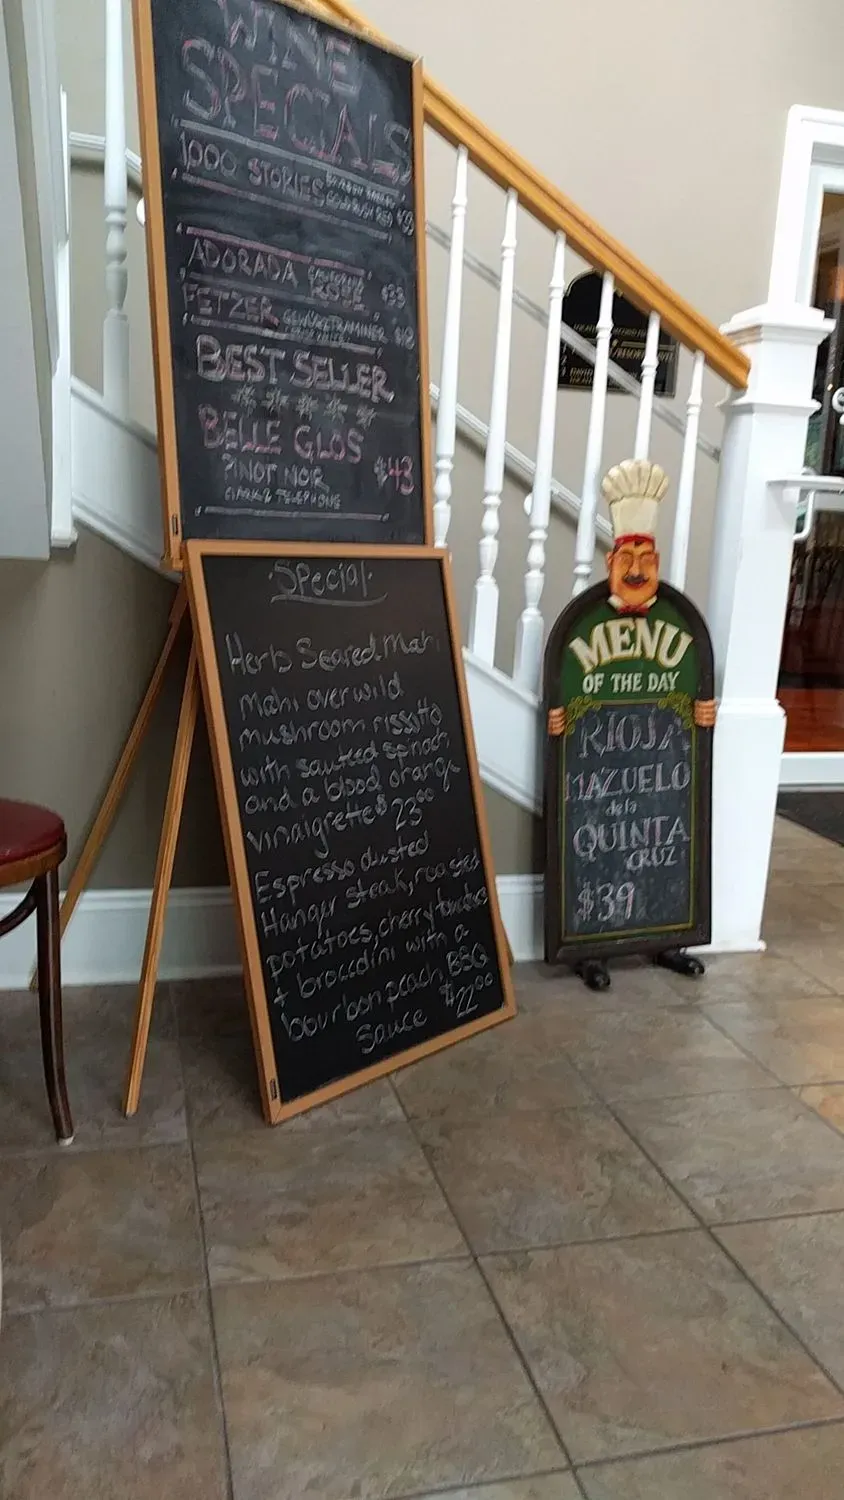 WINE
SPECIALS
1000 STORIES BOURBON BARREL
GOLD RUSH RED $33
ADORADA CALIFORNIA
ROSE $33
FETZER GEWURZTRAMINER $18
BEST SELLER
BELLE GLOS
PINOT NOIR $43
CLARK & TELEPHONE
Special
Herb Seared Mahi
Mahi over wild
mushroom rissotto
with sauteed spinach
and a blood orange
vinaigrette $23.00
Espresso dusted
Hanger steak, roasted
potatoes, cherry tomatoes
+ broccolini with a
bourbon peach BBQ
Sauce $22.00
MENU
OF THE DAY
RIOJA
MAZUELO
de la
QUINTA
CRUZ
$39